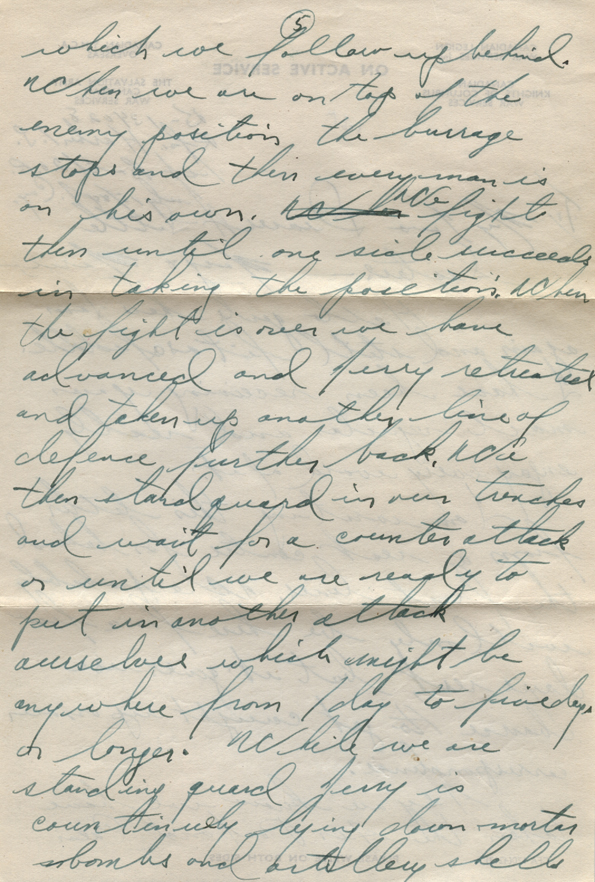 (5)
which we follow up behind.
When we are on top of the
enemy position the burrage
stops and then every man is
on his own. We fight
then until one side succeeds
in taking the position. When
the fight is over we have
advanced and Jerry retreated
and taken up another line of
defence further back. We
then stand guard in our trenches
and wait for a counter attack
or until we are ready to
put in another attack
ourselves which might be
anywhere from 1 day to five days
or longer. While we are
standing guard Jerry is
countinuely lying down mortar
bombs and artillery shells